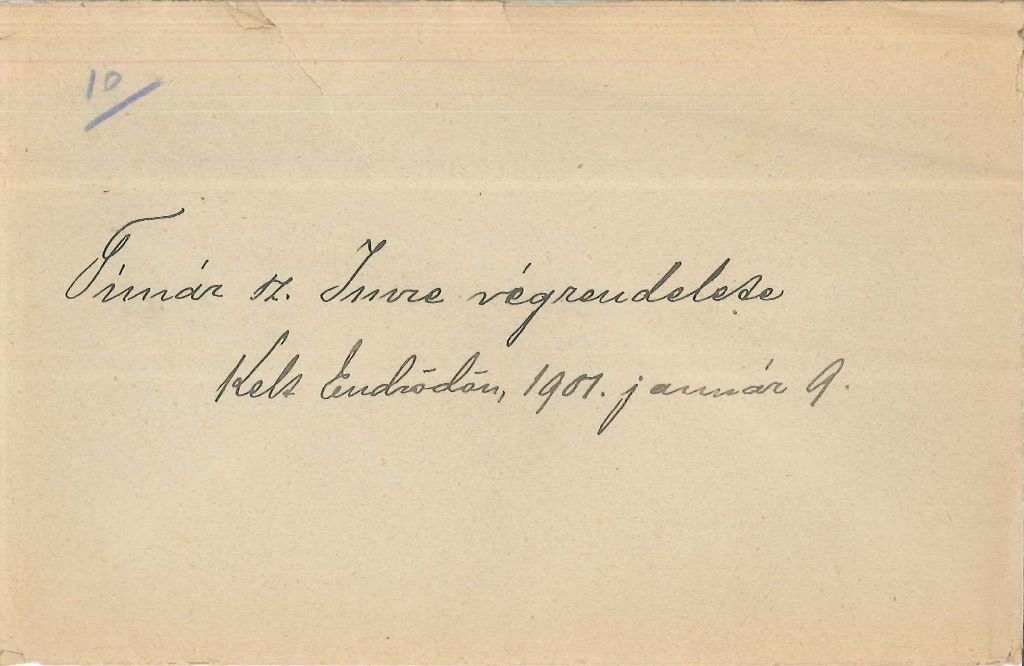 10
Tímár sz. Imre végrendelete
Kelt Endrődön, 1901. január 9.